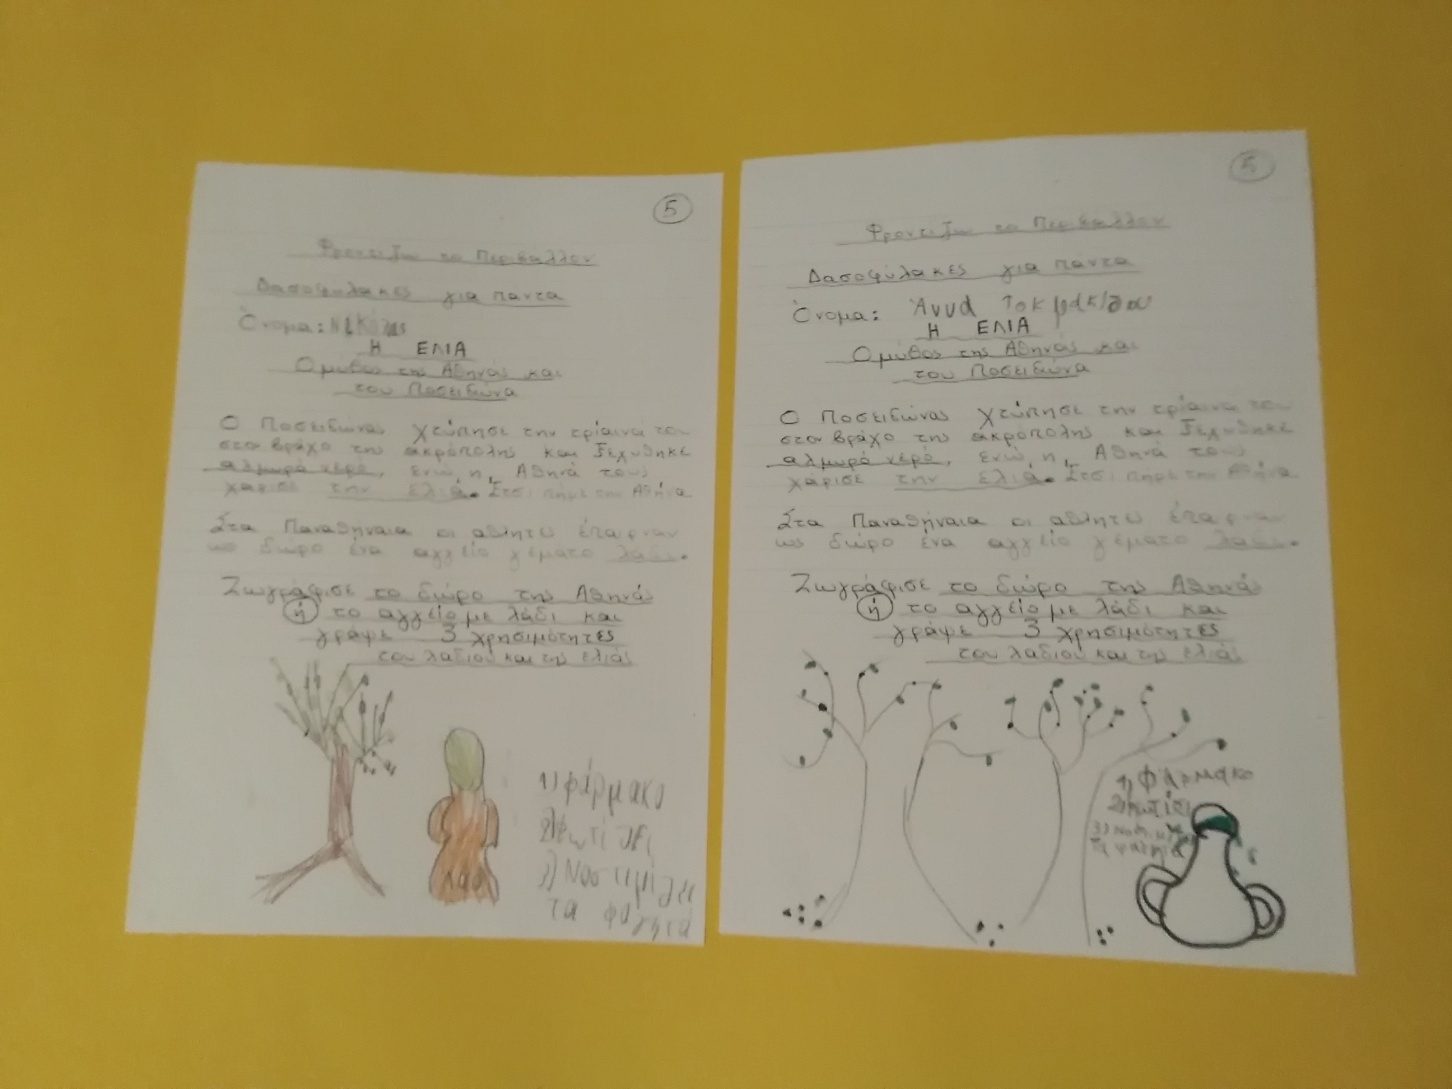 5
Φροντίζω το Περιβάλλον
Δασοφύλακες για παντα
Όνομα: Νικόλας
Η ΕΛΙΑ
Ο μύθος της Αθηνάς και
του Ποσειδώνα
Ο Ποσειδώνας χτύπησε την τρίαινα του
στον βράχο της ακρόπολης και ξεχύθηκε
αλμυρό νερό, ενώ η Αθηνά τους
χάρισε την ελιά. Έτσι πήρε την Αθήνα
Στα Παναθήναια οι αθλητές έπαιρναν
ως δώρο ένα αγγείο γεμάτο λάδι.
Ζωγράφισε το δώρο της Αθηνάς
ή το αγγείο με λάδι και
γράψε 3 χρησιμότητες
του λαδιού και της ελιάς
1) φάρμακο
2) φωτίζει
3) Νοστιμίζει
τα φαγητά
5
Φροντίζω το Περιβάλλον
Δασοφύλακες για παντα
Όνομα: Άννα
Η ΕΛΙΑ
Ο μύθος της Αθηνάς και
του Ποσειδώνα
Ο Ποσειδώνας χτύπησε την τρίαινα του
στον βράχο της ακρόπολης και ξεχύθηκε
αλμυρό νερό, ενώ η Αθηνά τους
χάρισε την ελιά. Έτσι πήρε την Αθήνα
Στα Παναθήναια οι αθλητές έπαιρναν
ως δώρο ένα αγγείο γεμάτο λάδι.
Ζωγράφισε το δώρο της Αθηνάς
ή το αγγείο με λάδι και
γράψε 3 χρησιμότητες
του λαδιού και της ελιάς
1) Φάρμακο
2)
3)
τα